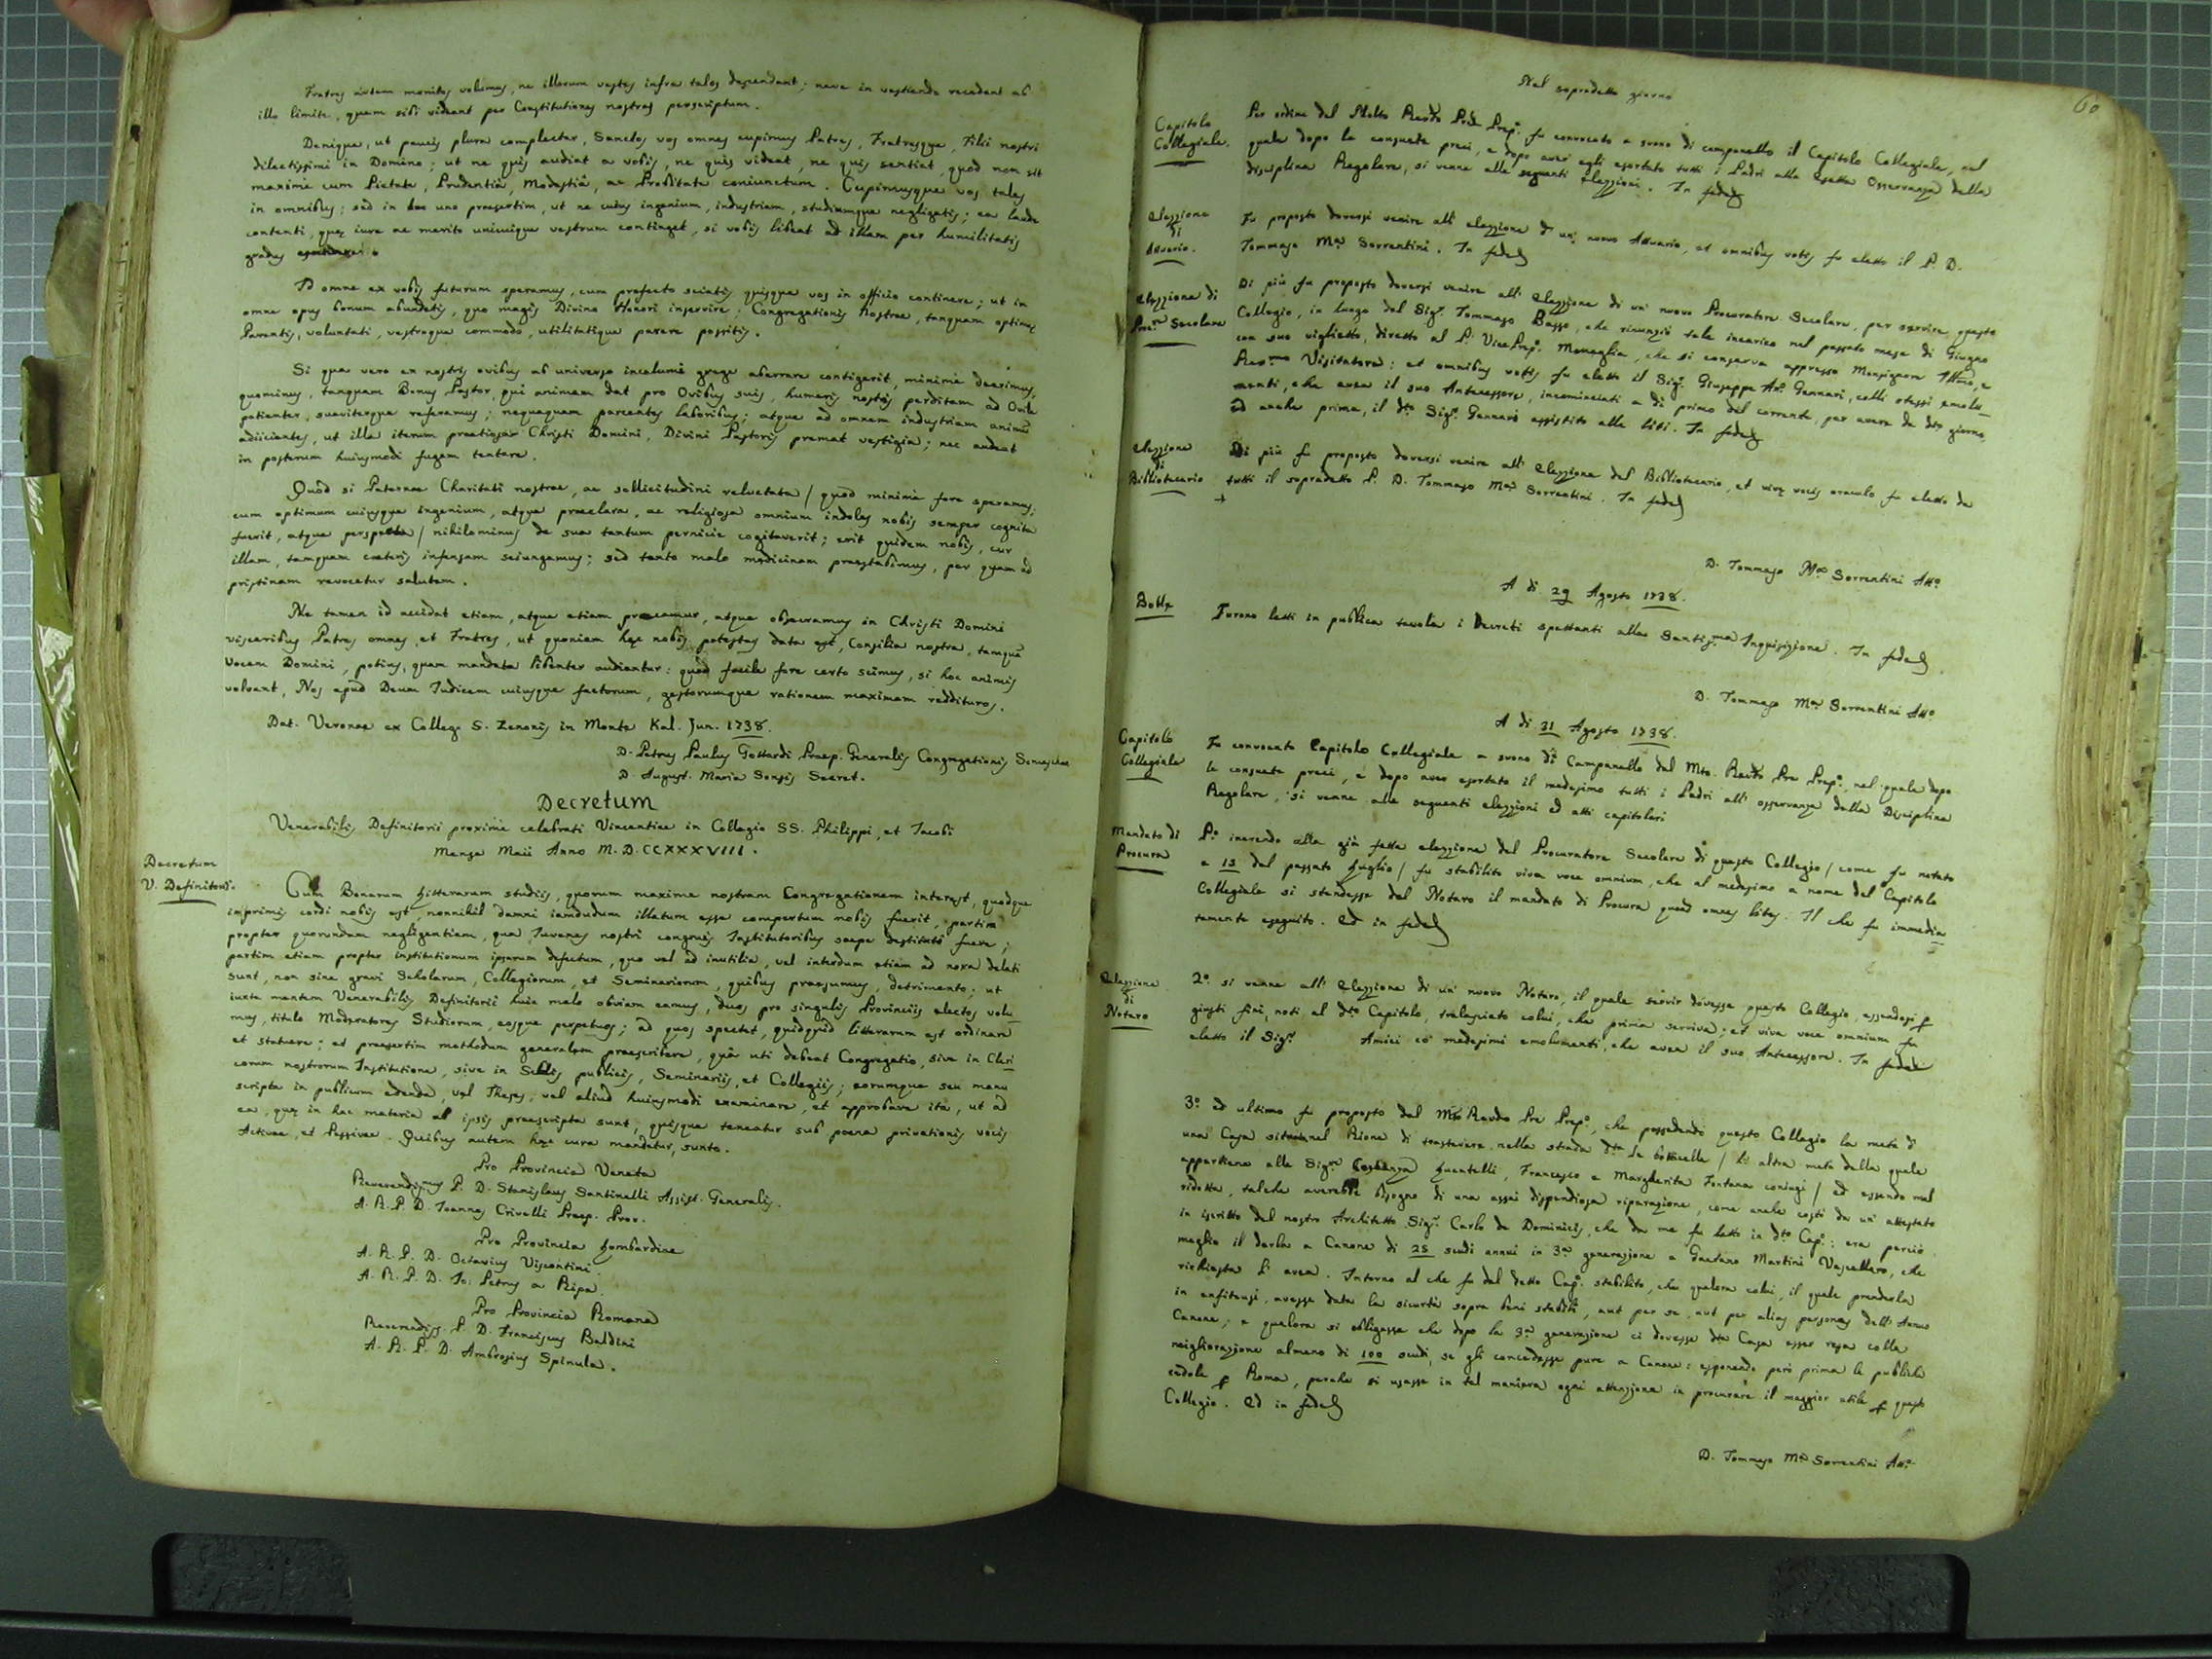 Fratres autem monitos volumus, ne illorum vestes infra talos descendant; neve in vestiendo recedant ab
illo limite, quem sibi videant per Constitutiones nostras perscriptum.
Denique, ut paucis plura complectar, Sanctos vos omnes cupimus Patres, Fratresque, Filii nostri
dilectissimi in Domino; ut ne quis audiat a vobis, ne quis videat, ne quis sentiat, quod non sit
maximè cum Pietate, Prudentiâ, Modestiâ, ac Probitate coniunctum. Cupimusque vos tales
in omnibus; sed in hoc uno praesertim, ut ne cuius ingenium, industriam, studiumque negligatis; ea laude
contenti, quae iure ac merito unicuique vestrum continget, si vobis libeat ad illam per humilitatis
gradus
Id omne ex vobis futurum speramus, cum profecto sciatis quisque vos in officio continere; ut in
omne opus bonum abundetis, quo magis Divino Honori inservire; Congregationis Nostrae, tanquam optimae
Parentis, voluntati, vestroque commodo, utilitatique parere possitis.
Si qua vero ex nostris ovibus ab universo incolumi grege aberrare contigerit, minimè deerimus,
quominus, tanquam Bonus Pastor, qui animam dat pro Ovibus suis, humeris nostris perditam ad Ovile
patienter, suaviterque referamus; nequaquam parcentes laboribus; atque ad omnem industriam animū
adiicientes, ut illa iterum praetiosa Christi Domini, Divini Pastoris premat vestigia; nec audeat
in posterum huiusmodi fugam tentare.
Quòd si Paternae Charitati nostrae, ac sollicitudini reluctata / quod minimè fore speramus;
cum optimum cuiusque ingenium, atque praeclara, ac religiosa omnium indoles nobis semper cognita
fuerit, atque perspecta / nihilominus de sua tantum pernicie cogitaverit; erit quidem nobis, cur
illam, tamquam caeteris infensam seiungamus; sed tanto malo medicinam praestabimus, per quam ad
pristinam revocetur salutem.
Ne tamen id accidat etiam, atque etiam precamur, atque obsecramus in Christi Domini
visceribus Patres omnes, et Fratres, ut quoniam haec nobis potestas data est, Consilia nostra, tamquā
Vocem Domini, potius, quam mandata libenter audiantur: quod facile fore certo scimus, si hoc animis
volvant, Nos apud Deum Iudicem cuiusque factorum, gestorumque rationem maximam reddituros.
Dat. Veronae ex Colleg. S. Zenonis in Monte Kal. Jun. 1738.
D. Petrus Paulus Gottardi Praep. Generalis Congregationis Somaschae
D. August. Maria Sonsis Secret.
Decretum
Venerabilis Definitorii proximè celebrati Vincentiae in Collegio SS. Philippi, et Iacobi
Mense Maii Anno M.D.CCXXXVIII.
Decretum
V. Definitorii.
Cum Bonarum Litterarum studiis, quorum maxime nostram Congregationem interest, quodque
imprimis cordi nobis est, nonnihil damni iamdudum illatum esse compertum nobis fuerit, partim
propter quorundam negligentiam, qua Iuvenes nostri congruis Institutoribus saepe destituti fuere;
partim etiam propter institutionum ipsarum defectum, quo vel ad inutilia, vel interdum etiam ad noxa delati
sunt, non sine gravi Scholarum, Collegiorum, et Seminariorum, quibus praesumus, detrimento; ut
iuxta mentem Venerabilis Definitorii huic malo obviam eamus, duos pro singulis Provinciis electos volu
mus, titulo Moderatores Studiorum, eosque perpetuos; ad quos spectet, quidquid litterarum est ordinare
et statuere; et praesertim methodum generalem praescribere, quâ uti debeat Congregatio, sive in Cleri
corum nostrorum Institutione, sive in Scholis publicis, Seminariis, et Collegiis; eorumque seu manu
scripta in publicum edenda, vel Theses, vel aliud huiusmodi examinare, et approbare ita, ut ad
ea, quae in hac materia ab ipsis praescripta sunt, quisque teneatur sub poena privationis vocis
Activae, et Passivae. Quibus autem haec cura mandatur, sunto.
Pro Provincia Veneta
Reverendissimus P. D. Stanislaus Santinelli Assist. Generalis.
A. R. P. D. Ioannes Crivelli Praep. Prov.
Pro Provincia Lombardiae
A. R. P. D. Octavius Viscontini
A. R. P. D. Io: Petrus a Ripa.
Pro Provincia Romana
Reverendiss. P. D. Franciscus Baldini
A. R. P. D. Ambrosius Spinula.
60
Nel sopradetto giorno
Capitolo
Collegiale.
Per ordine del Molto Revdo Pre Prepo. fu convocato a suono di campanello il Capitolo Collegiale, nel
quale dopo le consuete preci, e dopo aver egli esortato tutti i Padri alla esatta Osservanza della
disciplina Regolare, si venne alle seguenti elezzioni. In fede
Elezzione
di
Attuario.
Fu proposto doversi venire all' elezzione d' un' nuovo Attuario, et omnibus votis fu eletto il P. D.
Tommaso Ma. Sorrentini. In fede
Elezzione di
Prore. Secolare
Di più fu proposto doversi venire all' elezzione di un' nuovo Procuratore Secolare, per servire questo
Collegio, in luogo del Sigr. Tommaso Basso, che rinunziò tale incarico nel passato mese di Giugno
con suo viglietto, diretto al P. Vice Prepo. Moneglia, che si conserva appresso Monsignore Illmo, e
Revmo Visitatore: et omnibus votis fu eletto il Sigr. Giuseppe Ant. Gennari, colli stessi emolu_
menti, che avea il suo Antecessore, incominciati a dì primo del corrente, per avere da dto giorno,
ed anche prima, il dto Sigr. Gennari assistito alle liti. In fede
Elezzione
di
Bibliotecario
+
Di più fu proposto doversi venire all' elezzione del Bibliotecario, et vivae vocis oraculo fu eletto da
tutti il sopradetto P. D. Tommaso Ma. Sorrentini. In fede
D. Tommaso Ma. Sorrentini Atto.
A dì 29 Agosto 1738.
Bolle
Furono letti in publica tavola i Decreti spettanti alla Santissma Inquisizione. In fede.
D. Tommaso Ma. Sorrentini Atto.
A dì 31 Agosto 1738.
Capitolo
Collegiale
Fu convocato Capitolo Collegiale a suono di Campanello dal Mto. Revdo Pre Prepo., nel quale dopo
le consuete preci, e dopo aver esortato il medesimo tutti i Padri all' osservanza della Disciplina
Regolare, si venne alle seguenti elezzioni ed atti capitolari
Mandato di
Procura
Po. inerendo alla già fatta elezzione del Procuratore Secolare di questo Collegio / come fu notato
a 15 del passato Luglio / fu stabilito viva voce omnium, che al medesimo a nome del Capitolo
Collegiale si stendesse dal Notaro il mandato di Procura quoad omnes lites. Il che fu immedia
tamente eseguito. Ed in fede
Elezzione
di
Notaro
2o. si venne all' elezzione di un' nuovo Notaro, il quale servir dovesse questo Collegio, essendosi p
giusti fini, noti al dto Capitolo, tralasciato colui, che prima serviva; et viva voce omnium fu
eletto il Sigr. Amici co' medesimi emolumenti, che avea il suo Antecessore. In fede
3o. ed ultimo fu proposto dal Mto Revdo Pre Prepo., che possedendo questo Collegio la metà d'
una Casa situata nel Rione di trastevere nella strada dta Le botticelle / l' altra metà della quale
appartiene alle Sigre Costanza Quantelli, Francesco e Margherita Fontana coniugi / ed essendo mal
ridotta, talchè averebbe bisogno di una assai dispendiosa riparazione, come anche costò da un' attestato
in iscritto del nostro Architetto Sigr. Carlo de Dominicis, che da me fu letto in dto Capo.: era perciò
meglio il darla a Canone di 25 scudi annui in 3a generazione a Gaetano Martini Vascellaro, che
richiesta l' avea. Intorno al che fu dal detto Capo. stabilito, che qualora colui, il quale prenderla
in enfiteusi, avesse data la sicurtà sopra beni stabili, aut per se, aut per alias personas dell' Annuo
Canone; e qualora si obligasse che dopo la 3a generazione ci dovesse dta Casa esser resa colla
migliorazione almeno di 100 scudi, se gli concedesse pure a Canone: esponendo però prima le publiche
cedole p Roma, perchè si usasse in tal maniera ogni attenzione in procurare il maggior utile p questo
Collegio. Ed in fede
D. Tommaso Ma. Sorrentini Atto.